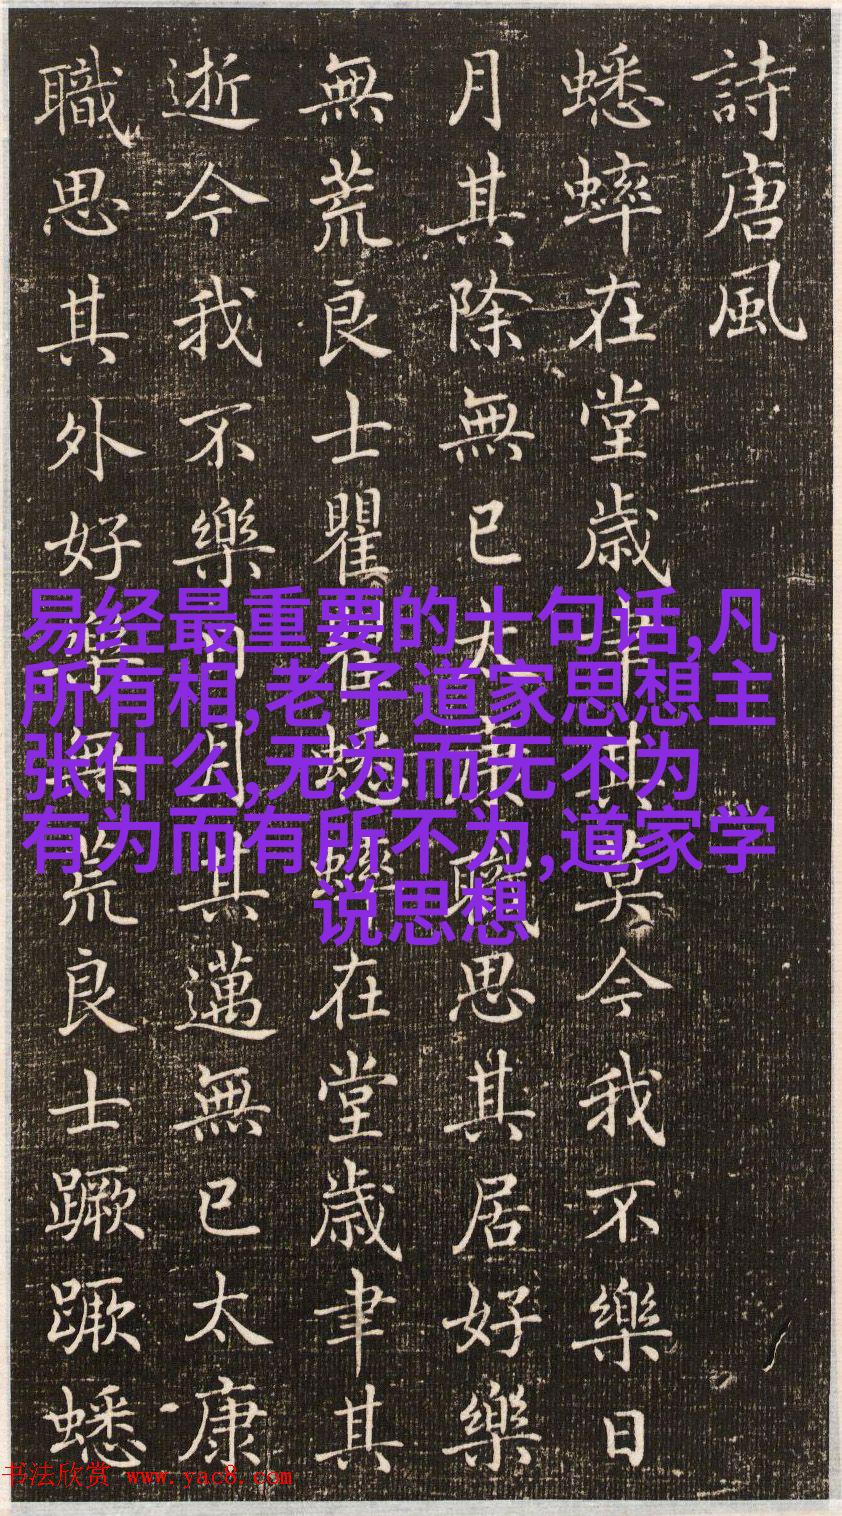 詩唐風
蟋蟀在堂歳聿其莫今我不樂日
月其除無已大康職思其居好樂
無荒良士瞿瞿蟋蟀在堂歳聿其
逝今我不樂日月其邁無已太康
職思其外好樂無荒良士蹶蹶蟋
易经最重要的十句话,凡
所有相,老子道家思想主
张什么,无为而无不为
有为而有所不为,道家学
说思想
书法欣赏 www.yac8.com